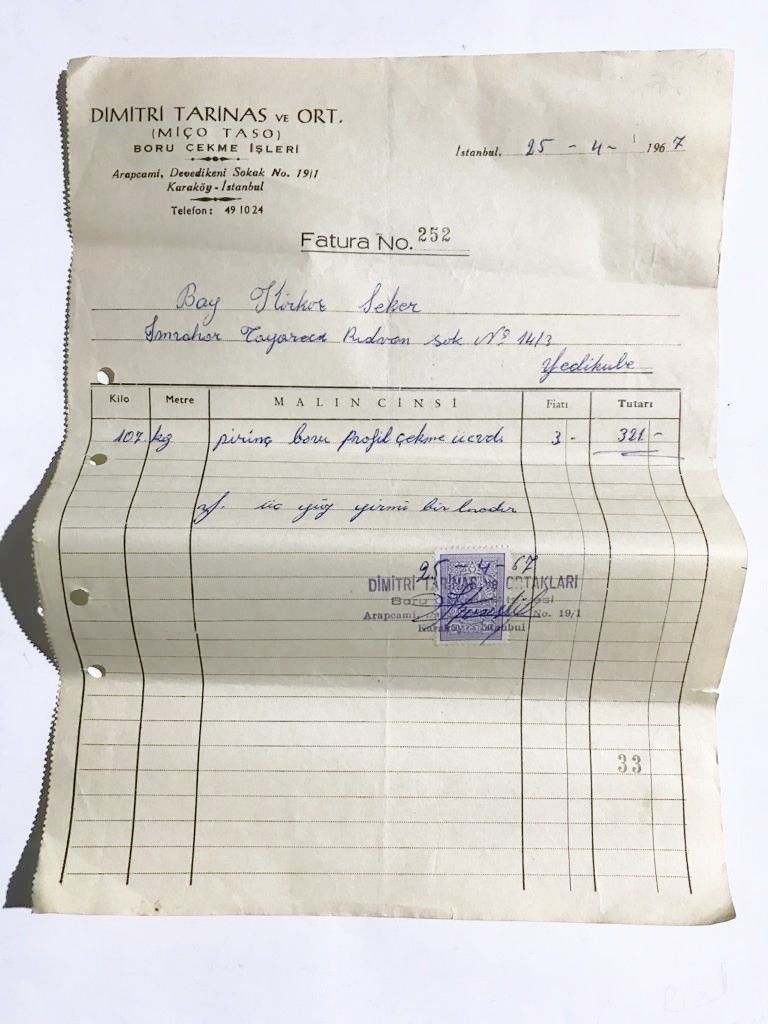 DIMITRI TARINAS VE ORT.
(MİÇO TASO)
BORU ÇEKME İŞLERİ
Arapcami, Devedikeni Sokak No. 19/1
Karaköy - İstanbul
Telefon: 49 10 24
İstanbul, 25 - 4 - 1967
Fatura No. 252
Bay Kirkor Şeker
İmrahor Tayareci Rıdvan sok Nº 14/3
Yedikule
Kilo Metre MALIN CİNSİ Fiatı Tutarı
107 kg pirinç boru profil çekme 3 - 321 -
üç yüz yirmi bir liradır
25 - 4 - 67
DİMİTRİ TARİNAS ve ORTAKLARI
Boru
Arapcami, No. 19/1
Karaköy - İstanbul
33